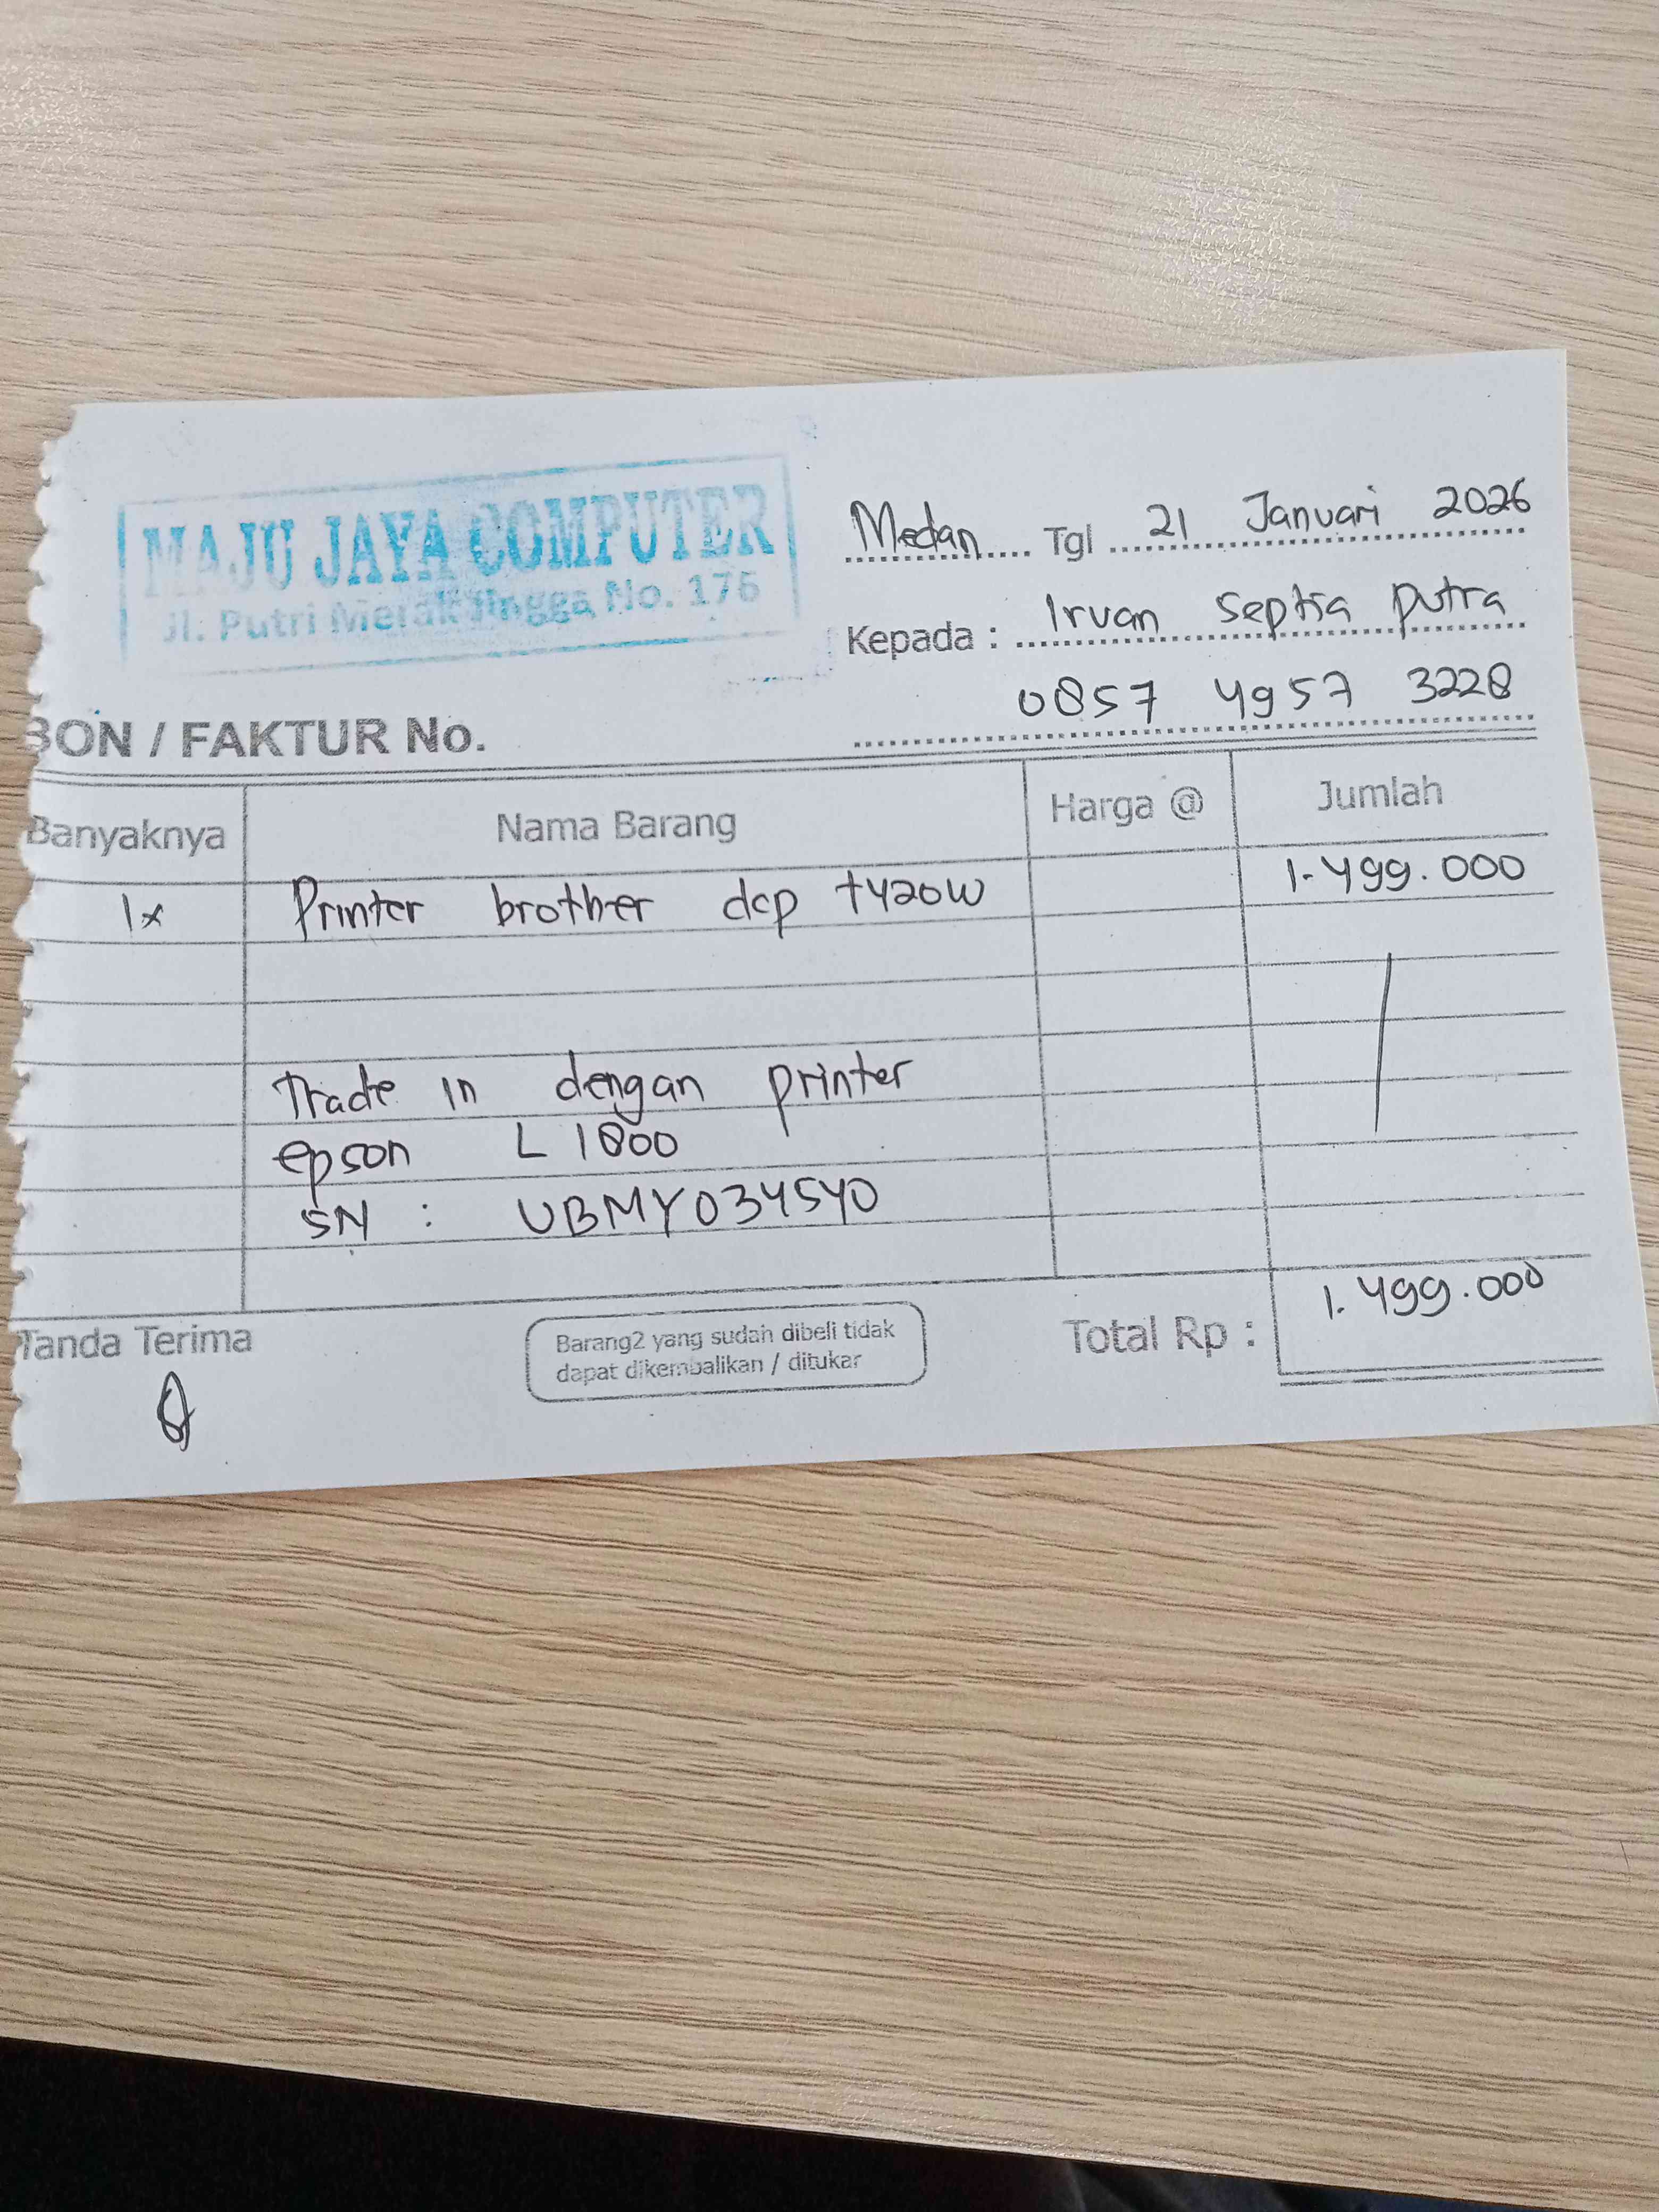 MAJU JAYA COMPUTER
Jl. Putri Merak Jingga No. 176
Medan Tgl 21 Januari 2026
Kepada : Irvan Septia putra
0857 4957 3228
BON / FAKTUR No.
Banyaknya Nama Barang Harga @ Jumlah
1x Printer brother dcp t420W 1.499.000
Trade in dengan printer
epson L 1800
SN : UBMY034540
Tanda Terima
Barang2 yang sudah dibeli tidak
dapat dikembalikan / ditukar
Total Rp : 1.499.000